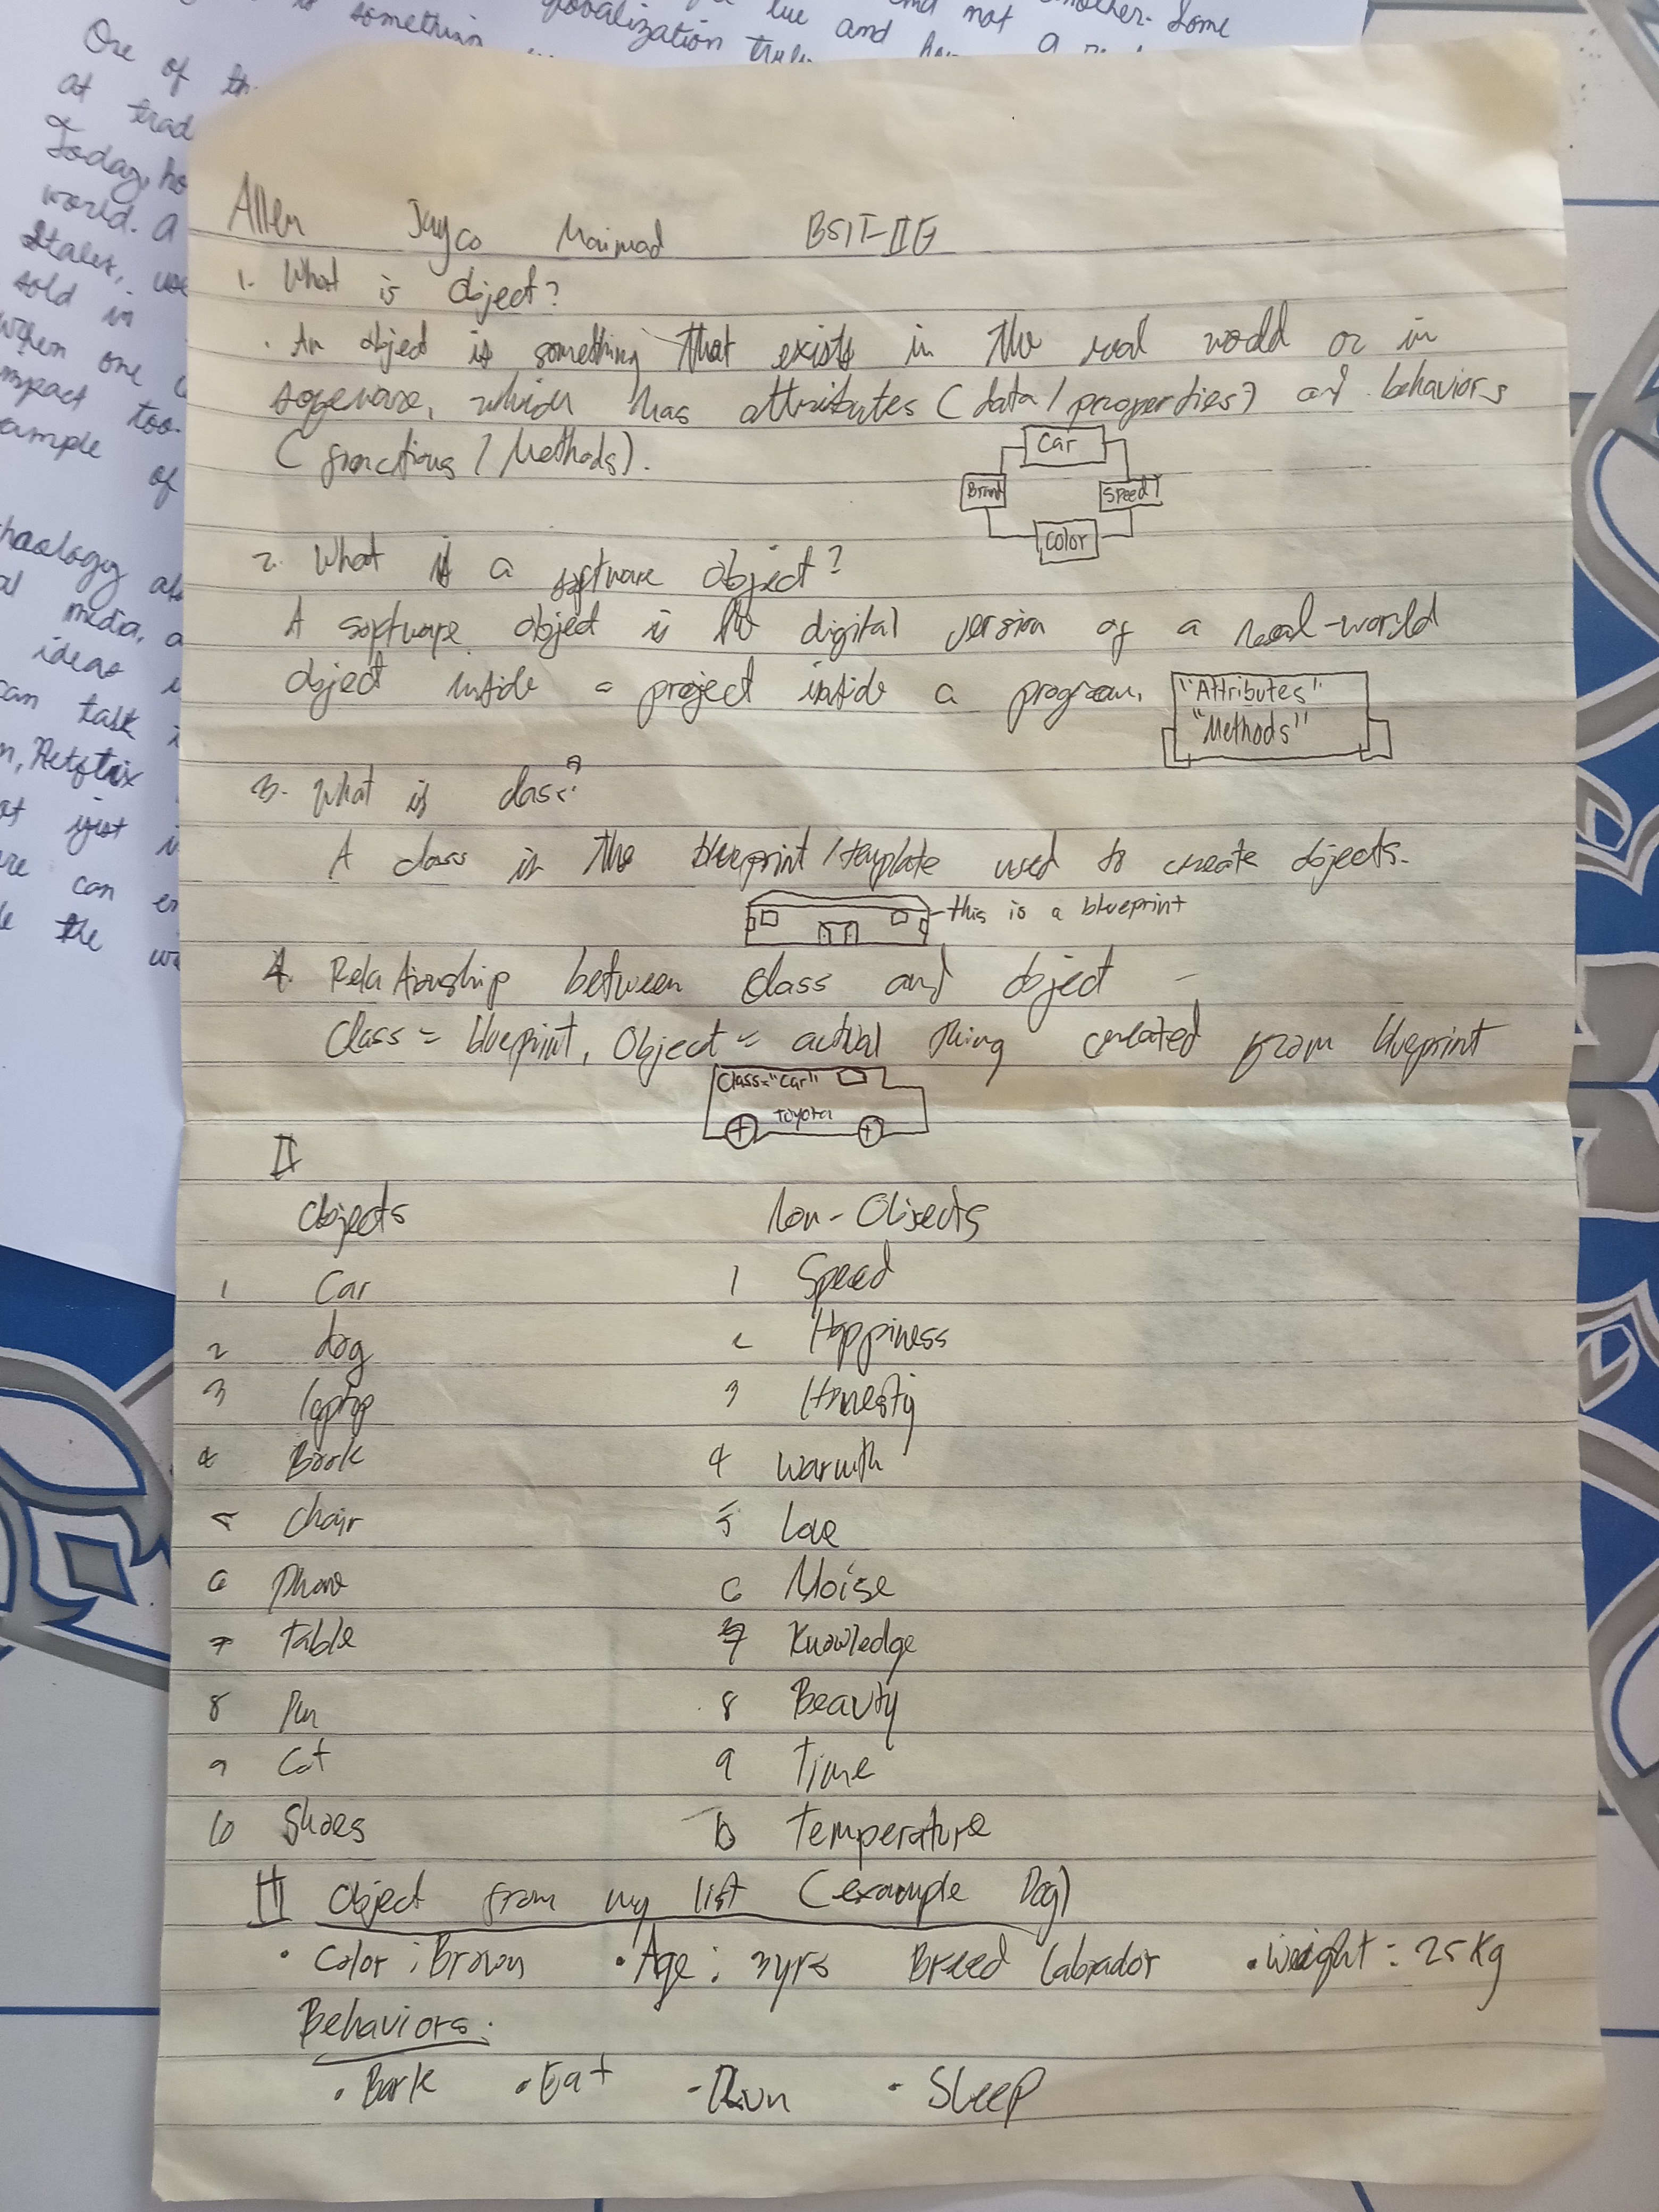 One of th
at trad
Today, ho
world. A
States, we
sold in
when one
impact too.
ample of
something globalization truly
lue and and not another. Some
media, a
ideas
can task
Netflix
just
can
the
Allen Jayco BSIT-II
1. What is object?
. An object is something that exists in the real world or in
software, which has attributes (data/properties) and behaviors
(functions / Methods).
Car
Brand Speed
Color
2. What is a software object?
A software object is the digital version of a real-world
object inside a project inside a program.
"Attributes"
"Methods"
3. What is class?
A class is the blueprint/template used to create objects.
this is a blueprint
4. Relationship between class and object
Class = blueprint, Object = actual thing created from blueprint
Class="Car"
toyota
II
Objects Non-Objects
1 Car 1 Speed
2 dog 2 Happiness
3 laptop 3 Honesty
4 Book 4 Warmth
5 Chair 5 Love
6 Phone 6 Noise
7 table 7 Knowledge
8 Pen 8 Beauty
9 Cat 9 Time
10 Shoes 10 Temperature
III Object from my list (example Dog)
• Color : Brown • Age : 3yrs Breed Labrador • Weight : 25 kg
Behaviors:
• Bark • Eat - Run • Sleep